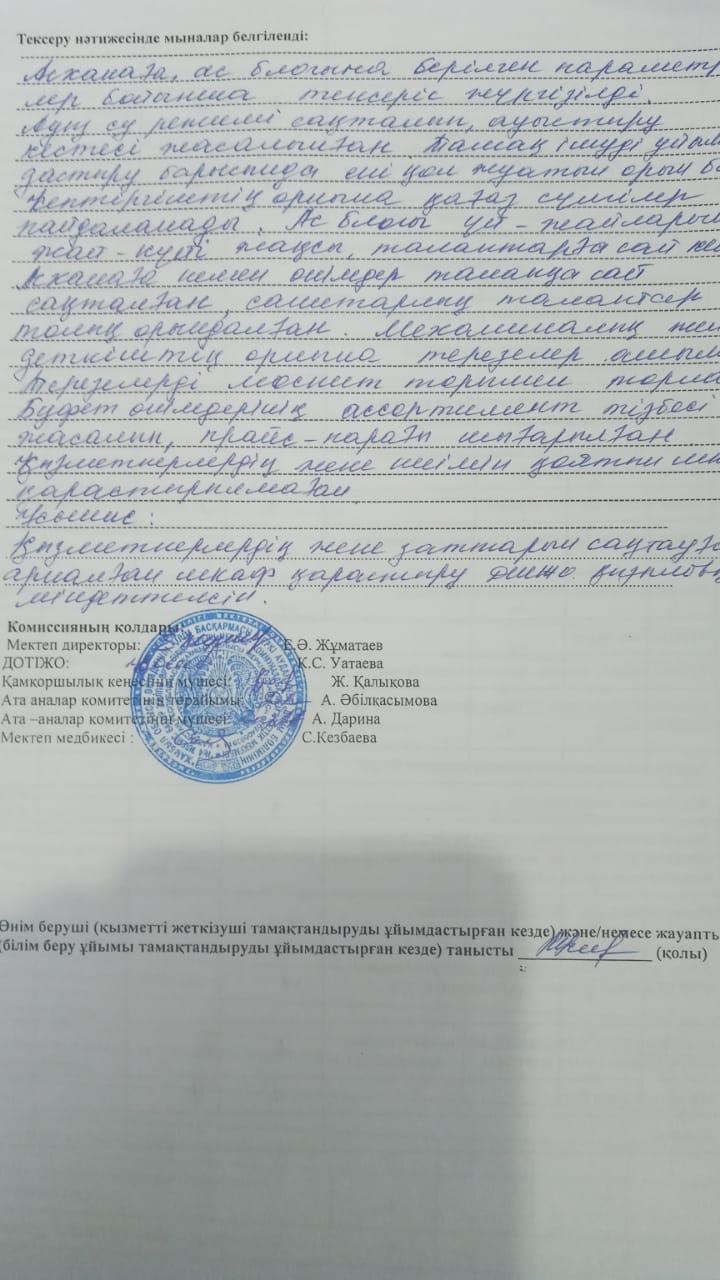 Тексеру нәтижесінде мыналар белгіленді:
Асханаға, ас блогына берілген параметр
лер бойынша тексеріс жүргізілді.
Ауыз су режимі сақталып, ауыстыру
кестесі жасалынған. Тамақ ішуді ұйым
дастыру барысында екі қол жуатын орын б
Кептіргіштің орнына қағаз сүлгілер
пайдаланады. Ас блогы үй-жайларын
жай-күйі жақсы, талаптарға сай
Асханаға келген өнімдер талапқа сай
сақталған, санитарлық талаптар
толық орындалған. Механикалық
деткіштің орнына терезелер ашыл
Терезелерді москит торымен торла
Буфет өнімдерінің ассортимент тізбесі
жасалып, прайс-парағы шығарылған.
Қызметкерлердің жеке киімін қоятын
қарастырылмаған.
Ұсыныс:
Қызметкерлердің жеке заттарын сақтауға
арналған шкаф қарастыру
міндеттелсін.
Комиссияның қолдары:
Мектеп директоры: Е.Ә. Жұматаев
ДОТІЖО: К.С. Уатаева
Қамқоршылық кеңесінің мүшесі: Ж. Қалықова
Ата аналар комитетінің төрайымы: А. Әбілқасымова
Ата –аналар комитетінің мүшесі: А. Дарина
Мектеп медбикесі : С.Кезбаева
Өнім беруші (қызметті жеткізуші тамақтандыруды ұйымдастырған кезде) және/немесе жауапты
(білім беру ұйымы тамақтандыруды ұйымдастырған кезде) танысты (қолы)